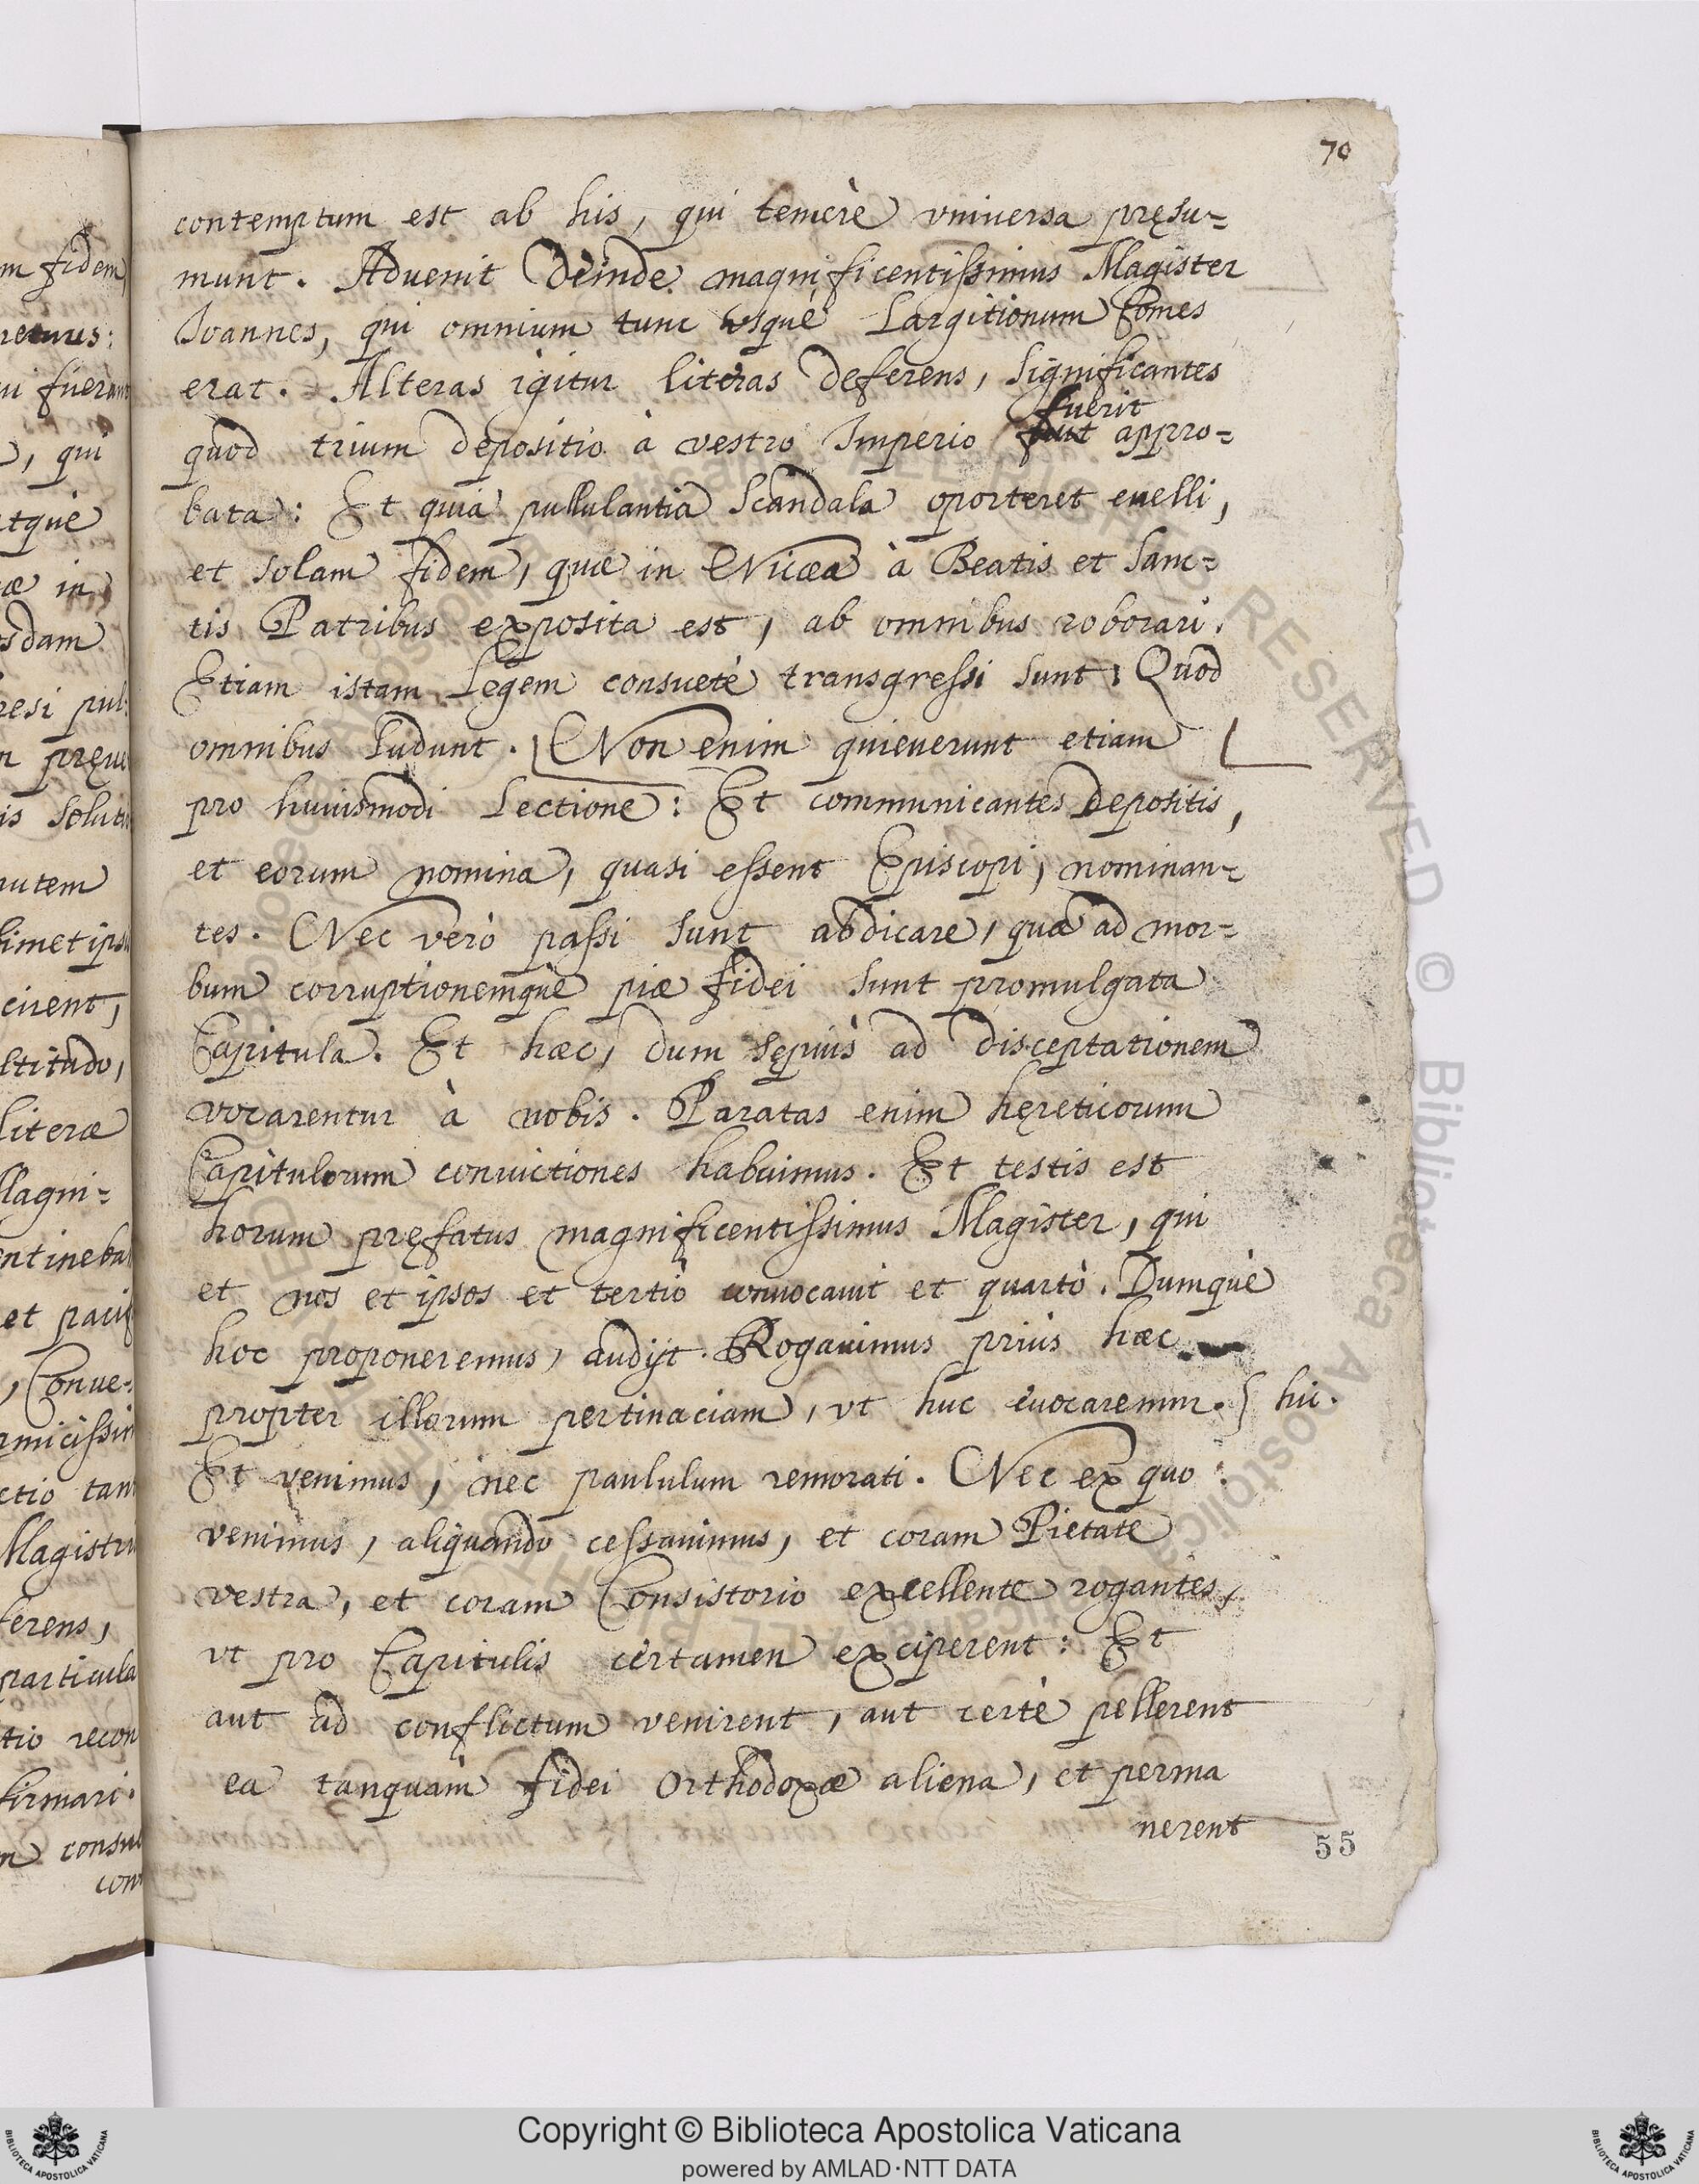 70
contemptum est ab his, qui temerè vniuersa pręsu-
munt. Aduenit deinde magnificentissimus Magister
Ioannes, qui omnium tunc usquè Largitionum Comes
erat. Alteras igitur literas deferens, significantes
fuerit
quod trium depositio à vestro Imperio fuit appro-
bata: Et quia pullulantia Scandala oporteret euelli,
et solam fidem, quæ in Nicæa à Beatis et Sanc-
tis Patribus exposita est, ab omnibus roborari.
Etiam istam Legem consuetè transgressi sunt, Quod
omnibus ludunt. Non enim quieuerunt etiam
pro huiusmodi Lectione: Et communicantes depositis,
et eorum nomina, quasi essent Episcopi, nominan-
tes. Nec verò passi sunt abdicare, quæ ad mor-
bum corruptionemquè piæ fidei sunt promulgata
Capitula. Et hæc, dum sępiùs ad disceptationem
vocarentur à nobis. Paratas enim hęreticorum
Capitulorum conuictiones habuimus. Et testis est
horum pręfatus magnificentissimus Magister, qui
et nos et ipsos et tertiò conuocauit et quartò. Dumquè
hoc proponeremus, audijt. Rogauimus priùs hæc
propter illorum pertinaciam, vt huc euocaremur. hic.
Et venimus, nec paululum remorati. Nec ex quo
venimus, aliquando cessauimus, et coram Pietate
vestra, et coram Consistorio excellente rogantes,
vt pro Capitulis certamen exciperent: Et
aut ad conflictum venirent, aut certè pellerent
ea tanquàm fidei Orthodoxæ aliena, et perma
nerent
55
Copyright © Biblioteca Apostolica Vaticana
powered by AMLAD·NTT DATA